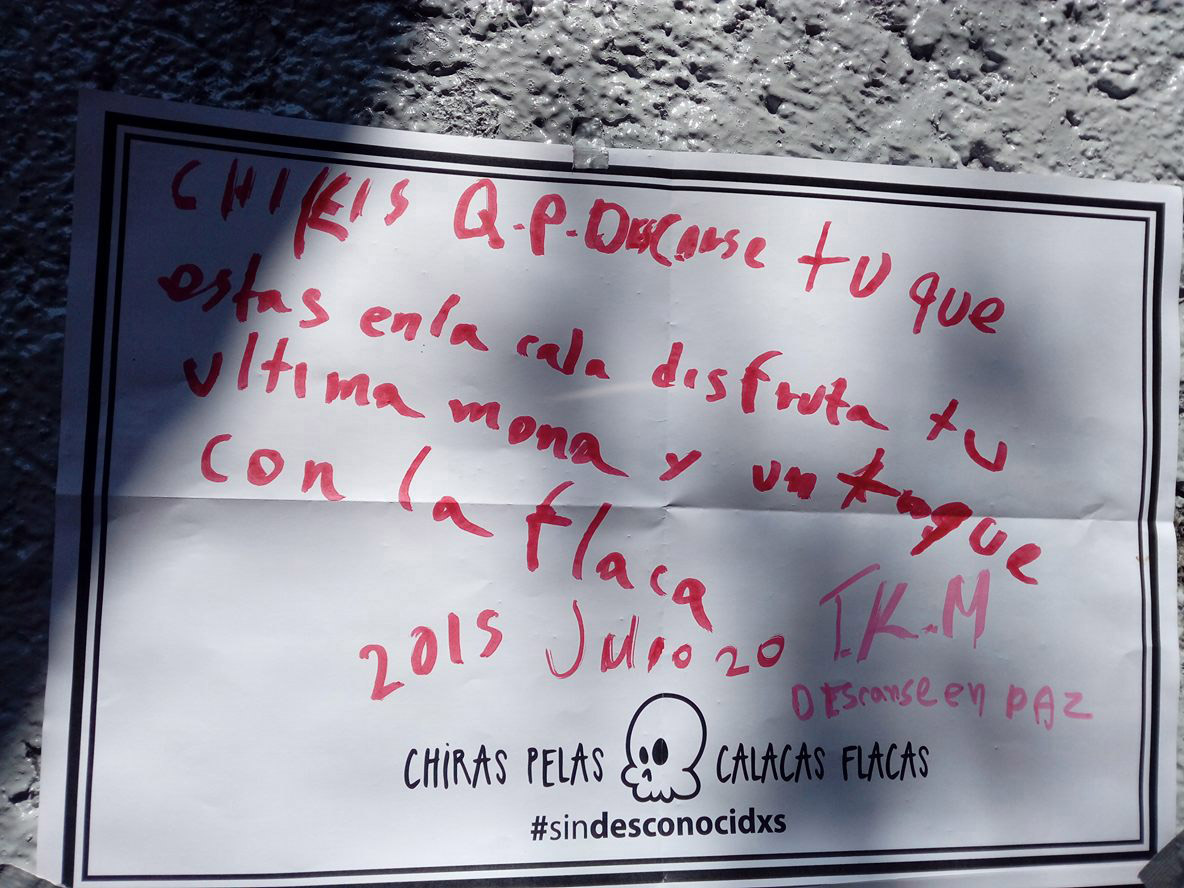 CHIKIS Q.P.Descanse tu que
estas en la cala disfruta tu
ultima mona y un toque
con la flaca
2015 Julio 20 T.K.M
DEscanse en PAZ
CHIRAS PELAS CALACAS FLACAS
#sindesconocidxs